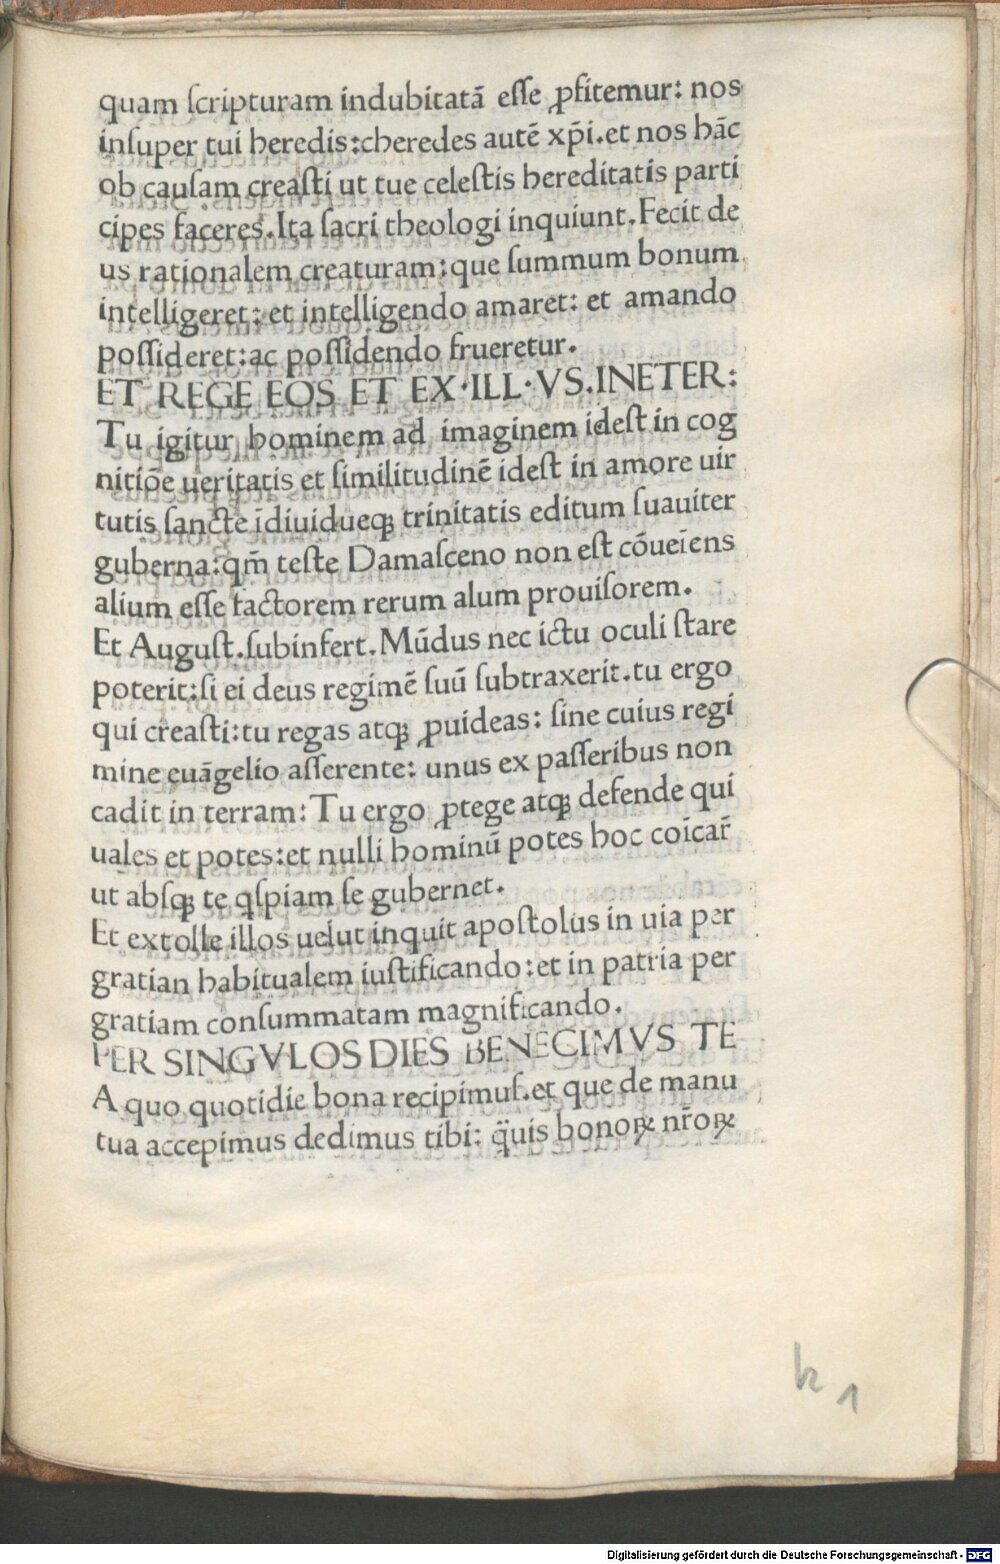 quam ſcripturam indubitatā eſſe ꝓfitemur: nos
inſuper tui heredis:cheredes autē xp̄i.et nos hāc
ob cauſam creaſti ut tue celeſtis hereditatis parti
cipes faceres.Ita ſacri theologi inquiunt.Fecit de
us rationalem creaturam:que ſummum bonum
intelligeret: et intelligendo amaret: et amando
poſſideret:ac poſſidendo frueretur.
ET REGE EOS ET EX·ILL·VS.INETER:
Tu igitur hominem ad imaginem idest in cog
nitiōe ueritatis et ſimilitudinē idest in amore uir
tutis ſancte īdiuidueqꝫ trinitatis editum ſuauiter
guberna:qm̄ teſte Damaſceno non eſt cōueīens
alium eſſe factorem rerum alum prouiſorem.
Et Auguſt.ſubinfert.Mūdus nec ictu oculi ſtare
poterit:ſi ei deus regimē ſuū ſubtraxerit.tu ergo
qui creaſti:tu regas atqꝫ ꝓuideas: ſine cuius regi
mine euāgelio aſſerente: unus ex paſſeribus non
cadit in terram: Tu ergo ꝓtege atqꝫ defende qui
uales et potes:et nulli hominū potes hoc coīcar̄
ut abſqꝫ te qſpiam ſe gubernet.
Et extolle illos uelut inquit apoſtolus in uia per
gratian habitualem iuſtificando:et in patria per
gratiam conſummatam magnificando.
PER SINGVLOS DIES BENECIMVS TE
A quo quotidie bona recipimuſ.et que de manu
tua accepimus dedimus tibi: q̈uis bonoꝝ nr̄oꝝ
k 1
Digitalisierung gefördert durch die Deutsche Forschungsgemeinschaft - DFG